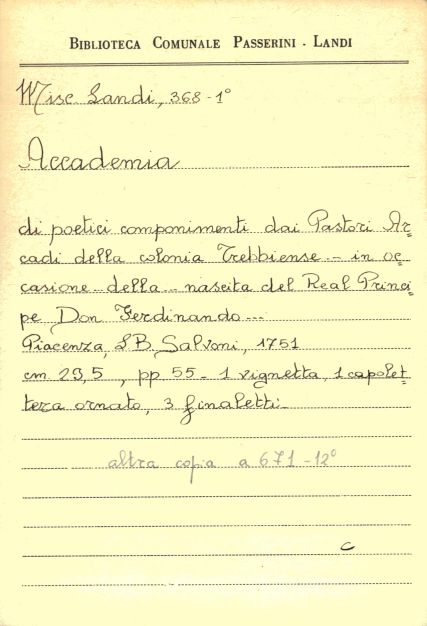 BIBLIOTECA COMUNALE PASSERINI - LANDI
Misc Landi, 368-1°
Accademia
di poetici componimenti dai Pastori Ar=
cadi della colonia Trebbiense - in oc=
casione della - nascita del Real Princi=
pe Don Ferdinando ---
Piacenza, L B Salvoni, 1751
cm 29,5 , pp 55 - 1 vignetta, 1 capolet=
tera ornato, 3 finaletti -
altra copia a 671-12°
c